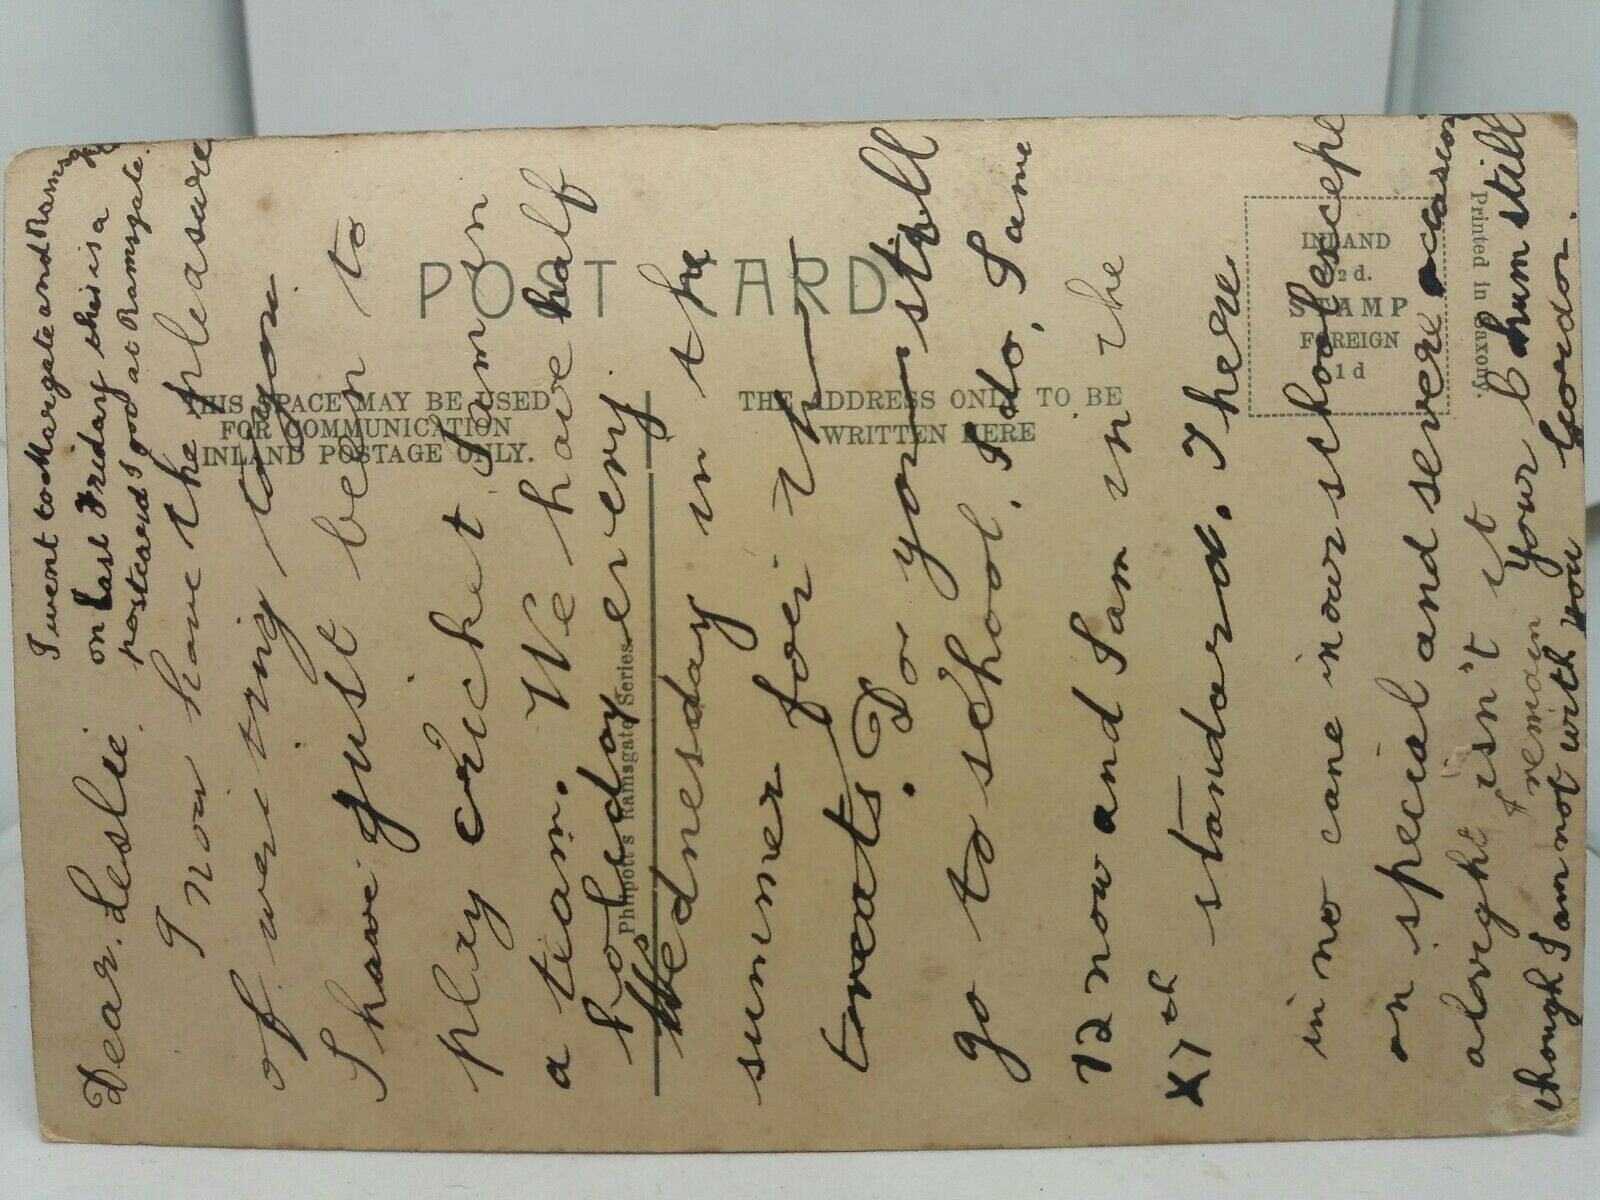 I went to Margate and Ramsgate
on Last Friday this is a
postcard I got at Ramsgate.
Dear. Leslie.
I now have the pleasure
of writing to you.
I have just been to
play cricket I am in
a team. We have half
holiday every
Wednesday in the
summer for it
treats. Do you still
go to school. I do. I am
12 now and I am in the
X7th standard. There
in no cane in our school escept
on special and severe occasions
alright isn't it
I remain your chum still
though I am not with you Gordon.
POST CARD
THIS SPACE MAY BE USED
FOR COMMUNICATION
INLAND POSTAGE ONLY.
THE ADDRESS ONLY TO BE
WRITTEN HERE
INLAND
½d.
STAMP
FOREIGN
1d
Printed in Saxony.
Philpott's Ramsgate Series